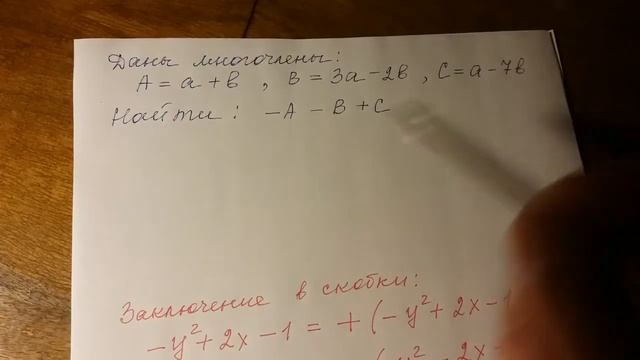 Даны многочлены:
A = a + b , B = 3a - 2b , C = a - 7b
Найти: - A - B + C
Заключение в скобки:
- y² + 2x - 1 = + (- y² + 2x - 1